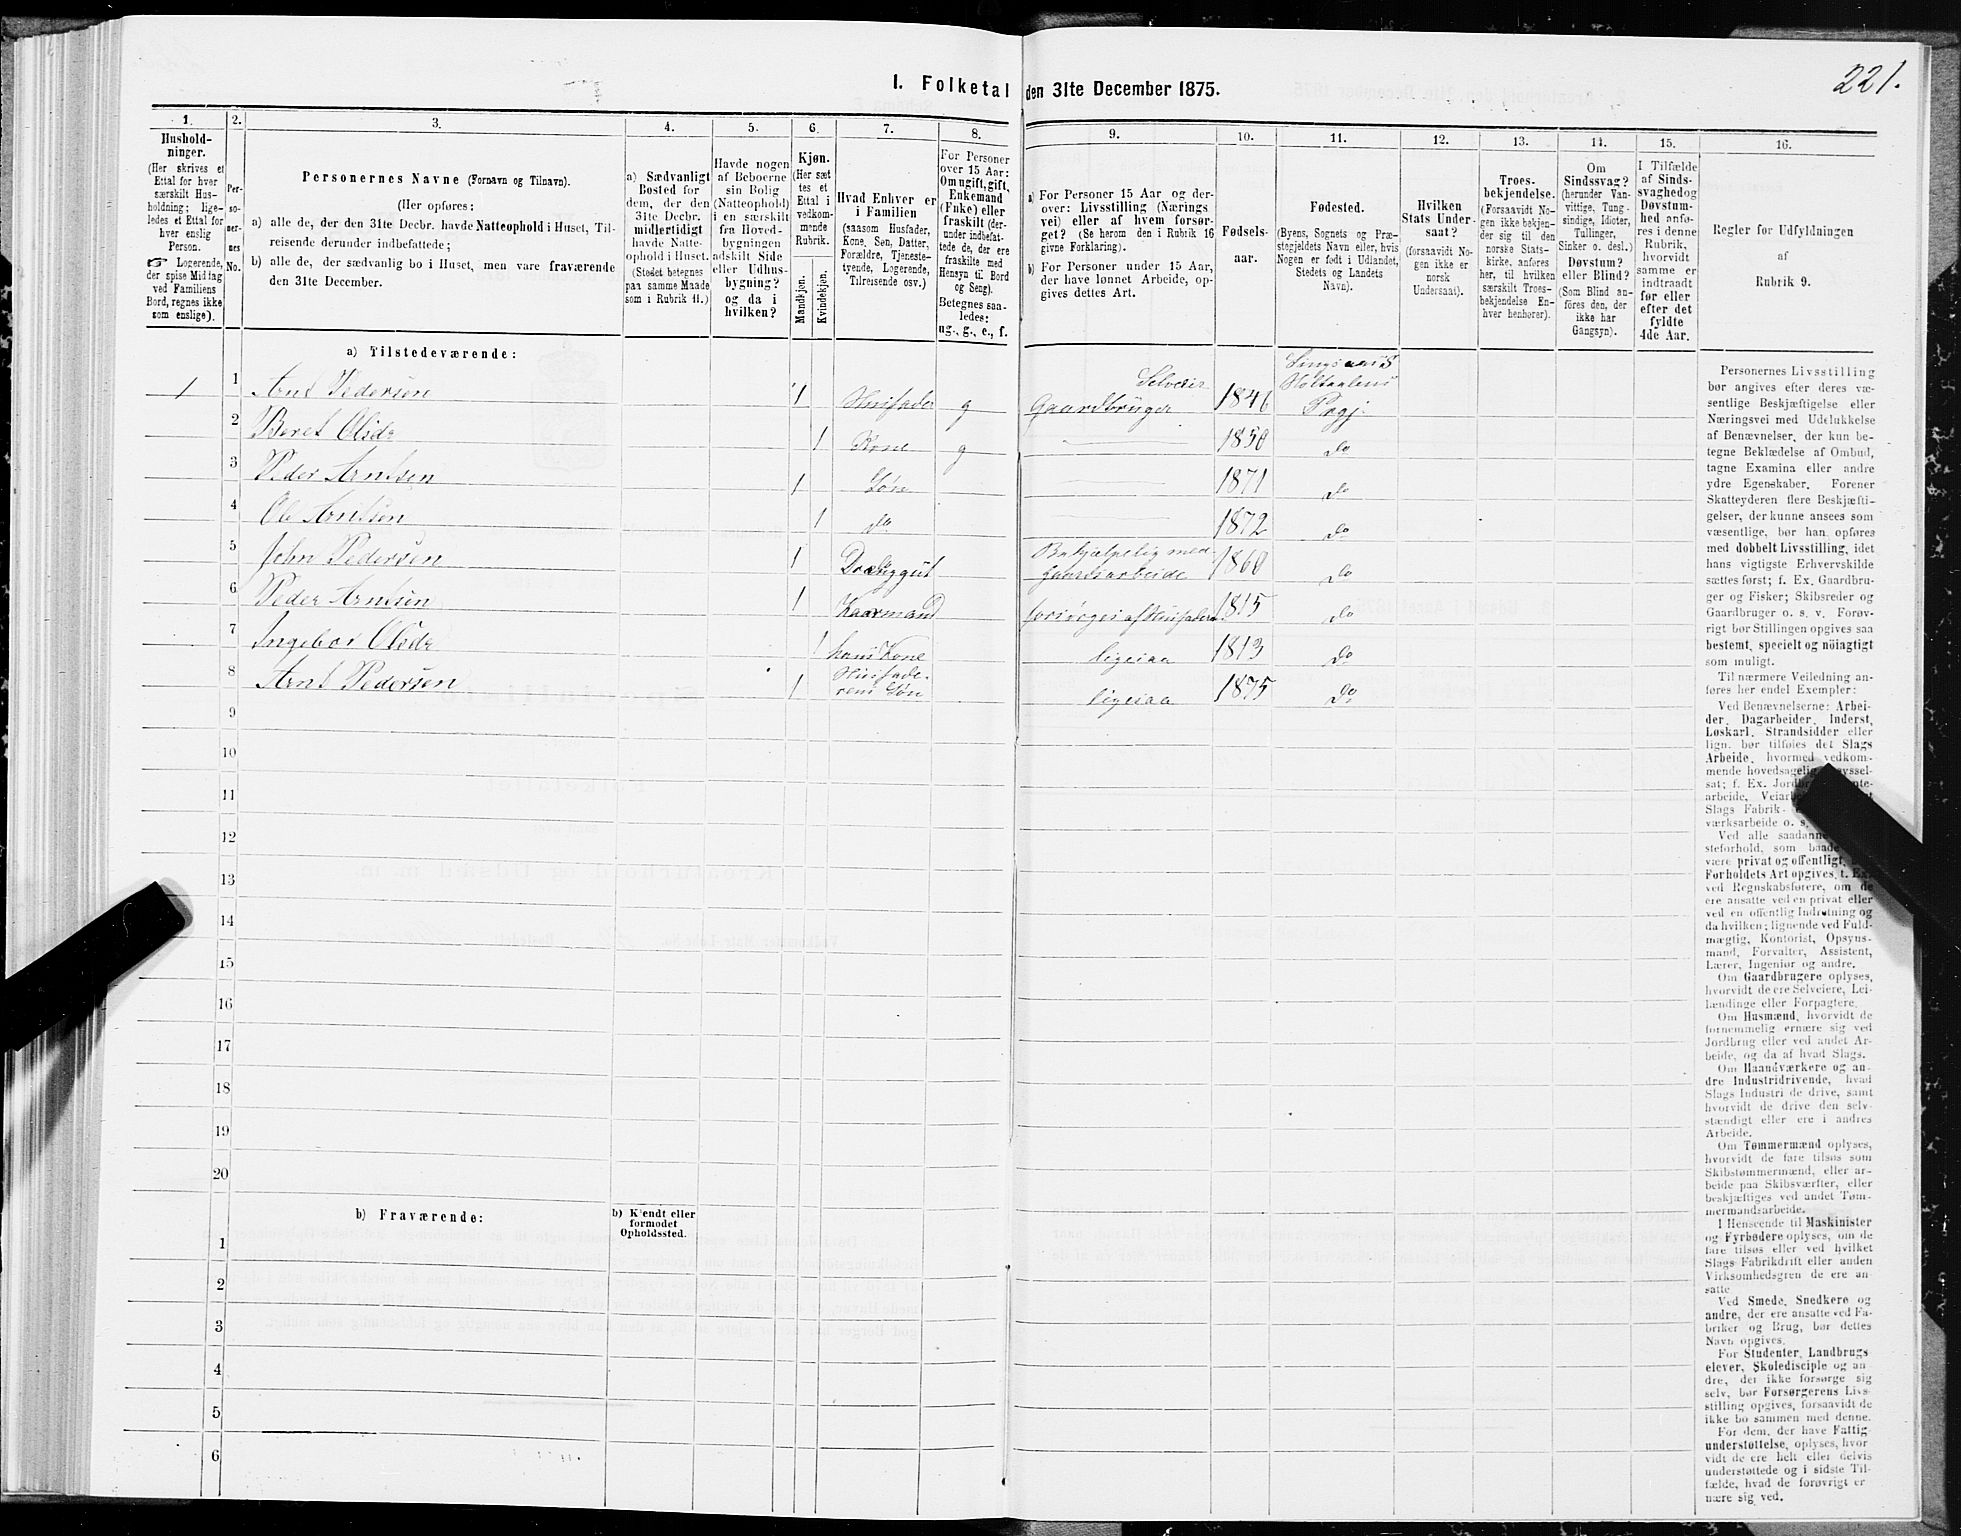 221.
I. Folketal den 31te December 1875.
1. 2. 3. 4. 5. 6. 7. 8. 9. 10. 11. 12. 13. 14. 15. 16.
Hushold-
ninger.
(Her skrives et
Ettal for hver
særskilt Hus-
holdning; lige-
ledes et Ettal for
hver enslig
Person.
☞ Logerende,
der spise Middag
ved Familiens
Bord, regnes ikke
som enslige).
Per-
so-
ner-
nes
No.
Personernes Navne (Fornavn og Tilnavn).
(Her opføres:
a) alle de, der den 31te Decbr. havde Natteophold i Huset, Til-
reisende derunder indbefattede;
b) alle de, der sædvanlig bo i Huset, men vare fraværende
den 31te December.
a) Sædvanligt
Bosted for
dem, der den
31te Decbr.
midlertidigt
havde Natte-
ophold i Huset.
(Stedet betegnes
paa samme Maade
som i Rubrik 11.)
Havde nogen
af Beboerne
sin Bolig
(Natteophold)
i en særskilt
fra Hoved-
bygningen
adskilt Side
eller Udhus-
bygning?
og da i
hvilken?
Kjøn.
(Her sæt
tes et
Ettal i
vedkom-
mende
Rubrik.
Mandkjøn.
Kvindekjøn.
Hvad Enhver er
i Familien
(saasom Husfader,
Kone, Søn, Datter,
Forældre, Tjeneste-
tyende, Logerende,
Tilreisende osv.)
For Personer
over 15 Aar:
Om ugift, gift,
Enkemand
(Enke) eller
fraskilt (der-
under indbefat-
tede de, der ere
fraskilte med
Hensyn til Bord
og Seng).
Betegnes saa-
ledes:
ug., g., e., f.
a) For Personer 15 Aar og der-
over: Livsstilling (Nærings
vei) eller af hvem forsør-
get? (Se herom den i Rubrik 16
givne Forklaring).
b) For Personer under 15 Aar,
der have lønnet Arbeide, op-
gives dettes Art.
Fødsels-
aar.
Fødested.
(Byens, Sognets og Præ-
stegjeldets Navn eller, hvis
Nogen er født i Udlandet,
Stedets og Landets
Navn).
Hvilken
Stats Under-
saat?
(forsaavidt No-
gen ikke er
norsk
Undersaat).
Troes-
bekjendelse.
(Forsaavidt No-
gen ikke bekjen-
der sig til den
norske Stats-
kirke, anføres
her, til hvilken
særskilt Troes-
bekjendelse En-
hver henhører).
Om
Sindssvag?
(herunder Van-
vittige, Tung-
sindige, Idioter,
Tullinger,
Sinker o. desl.)
Døvstum?
eller Blind?
(Som Blind an-
føres den, der
ikke har
Gangsyn).
I Tilfælde
af Sinds-
svaghed og
Døvstum-
hed anfø-
res i denne
Rubrik,
hvorvidt
samme er
indtraadt
før eller
efter det
fyldte
4de Aar.
Regler for Udfyldningen
af
Rubrik 9.
a) Tilstedeværende:
1 1 Arnt Pedersen 1 Husfader g Selveier Gaardbruger 1846 Singsaas Holtaalens Prgj.
2 Beret Olsdr 1 Kone g 1850 Do
3 Peder Arntsen 1 Søn 1871 Do
4 Ole Arntsen 1 do 1872 Do
5 John Pedersen 1 Behjælpelig med Gaardsarbeide 1860 Do
6 Peder Arntsen 1 Kaarmand forsørges af Husfaderen 1815 Do
7 Ingebor Olsdr 1 hans Kone ligesaa 1813 Do
8 Arnt Pedersen 1 Husfade-
rens Søn ligesaa 1875 Do
9
10
11
12
13
14
15
16
17
18
19
20
b) Fraværende:
b) Kjendt eller
formodet
Opholdssted.
1
2
3
4
5
6
Personernes Livsstilling
bør angives efter deres væ-
sentlige Beskjæftigelse eller
Næringsvei med Udelukkelse
af Benævnelser, der kun be-
tegne Beklædelse af Ombud,
tagne Examina eller andre
ydre Egenskaber. Forener
Skatteyderen flere Beskjæfti-
gelser, der kunne ansees som
væsentlige, bør han opføres
med dobbelt Livsstilling, idet
hans vigtigste Erhvervskilde
sættes først; f. Ex. Gaardbru-
ger og Fisker; Skibsreder og
Gaardbruger o. s. v. Forøv-
rigt bør Stillingen opgives saa
bestemt, specielt og nøiagtig
som muligt.
Til nærmere Veiledning an-
føres her endel Exempler:
Ved Benævnelserne: Arbei-
der, Dagarbeider, Inderst,
Løskarl, Strandsidder eller
lign. bør tilføies det Slags
Arbeide, hvormed vedkom-
mende hovedsagelig
sat; f. Ex.
arbeide,
Slags Fabrik-
værksarbeide o. s.
Ved alle
steforhold, som
være privat og offentligt,
Forholdets Art opgives, t. Ex.
ved Regnskabsførere, om de
ere ansatte ved en privat eller
ved en offentlig Indretning og
da hvilken; lignende ved Fuld-
mægtig, Kontorist, Opsyns-
mand, Forvalter, Assistent,
Lærer, Ingeniør og andre.
Om Gaardbrugere oplyses,
hvorvidt de ere Selveiere, Lei-
lændinge eller Forpagtere.
Om Husmænd, hvorvidt de
fornemmelig ernære sig ved
Jordbrug eller ved andet Ar-
beide, og da af hvad Slags.
Om Haandværkere og an-
dre Industridrivende, hvad
Slags Industri de drive, samt
hvorvidt de drive den selv-
stændigt eller ere i andres
Arbeide.
Om Tømmermænd oplyses,
hvorvidt de fare tilsøs som
Skibstømmermænd, eller ar-
beide paa Skibsværfter, eller
beskjæftiges ved andet Tøm-
mermandsarbeide.
I Henseende til Maskinister
og Fyrbødere oplyses, om de
fare tilsøs eller ved hvilket
Slags Fabrikdrift eller anden
Virksomhedsgren de ere an-
satte
Ved Smede, Snedkere og
andre, der ere ansatte ved Fa-
briker og Brug, bør dettes
Navn opgives.
For Studenter, Landbrugs
elever, Skoledisciple og an
dre, der ikke forsørge sig
selv, bør Forsørgerens Livs-
stilling opgives, forsaavidt de
ikke bo sammen med denne.
For dem, der have Fattig
understøttelse, oplyses, hvor
vidt de ere helt eller delvis
understøttede og i sidste Til-
fælde, hvad de forøvrigt er
nære sig ved.